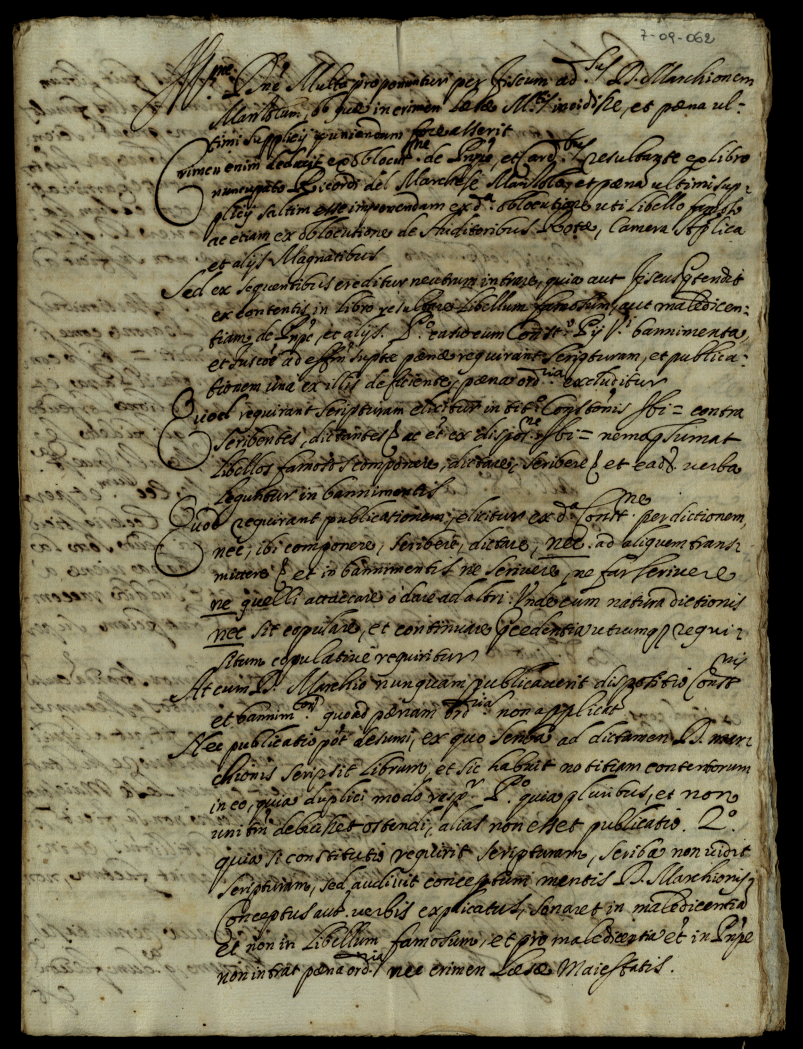 7-09-062
Ill.me D.ne Multa proponuntur per Fiscum ad.sus D. Marchionem
Manlium, ob quæ in crimen Lesæ M.tis incidisse, et pæna ul-
timi supplicij puniendum fore asserit
Crimen enim deducit ex oblocut.ne de Pnpe, et Card.bus resultante ex libro
nuncupato Ricordi del Marchese et pæna ultimi sup-
plicij saltim esse imponendam ex d.a oblocutione uti Libello famoso
ac etiam ex oblocutione de Auditoribus Rotæ, Camera Aplica
et alijs Magnatibus
Sed ex sequentibus creditur neutrum intrare, quia aut Fiscus prtendit
ex contentis in Libro resultare Libellum famosum, aut maledicen-
tiam de Pnpe, et alijs. P.o casu cum Const.o Pij V.i bannimenta,
et Iuscoe ad effm suptæ pænæ requirant scripturam, et publica-
tionem una ex illis deficiente, pæna ord.ria excluditur
Quod requirant scripturam elicitur in tit.o Constonis ibi = contra
scribentes, dictantes & ac et ex dispos.ne ibi = nemo psumat
libellos famosos componere, dictare, scribere & et ead. verba
leguntur in bannimentis
Quod requirant publicationem, elicitur ex d.a Const.ne per dictionem,
nec, ibi componere, scribere, dictare, nec ad aliquem trans-
mittere & et in bannimentis ne scrivere, ne far scrivere
ne quelli attaccare o dare ad altri. Unde cum natura dictionis
nec sit copulare, et continuare pcedentia utrumq requi-
situm copulative requiritur
At cum D. Marchio nunquam publicaverit dispositio Const.nis
et bannim.tor. quoad pænam ord.riam non applicat
Nec publicatio pot desumi, ex quo scriba ad dictamen D. Mar-
chionis scripsit Librum, et sic habuit notitiam contentorum
in eo, quia duplici modo resp.r P.o quia pluribus, et non
uni tm debuisset ostendi, alias non esset publicatio. 2.o
quia si constitutio requirit scripturam, scriba non vidit
scripturam, sed audivit conceptum mentis D. Marchionis,
Conceptus aut verbis explicatus, sonaret in maledicentia
et non in Libellum famosum, et pro maledicentia et in Pnpe
non intrat pæna ord.ria nec crimen Læsæ Maiestatis.